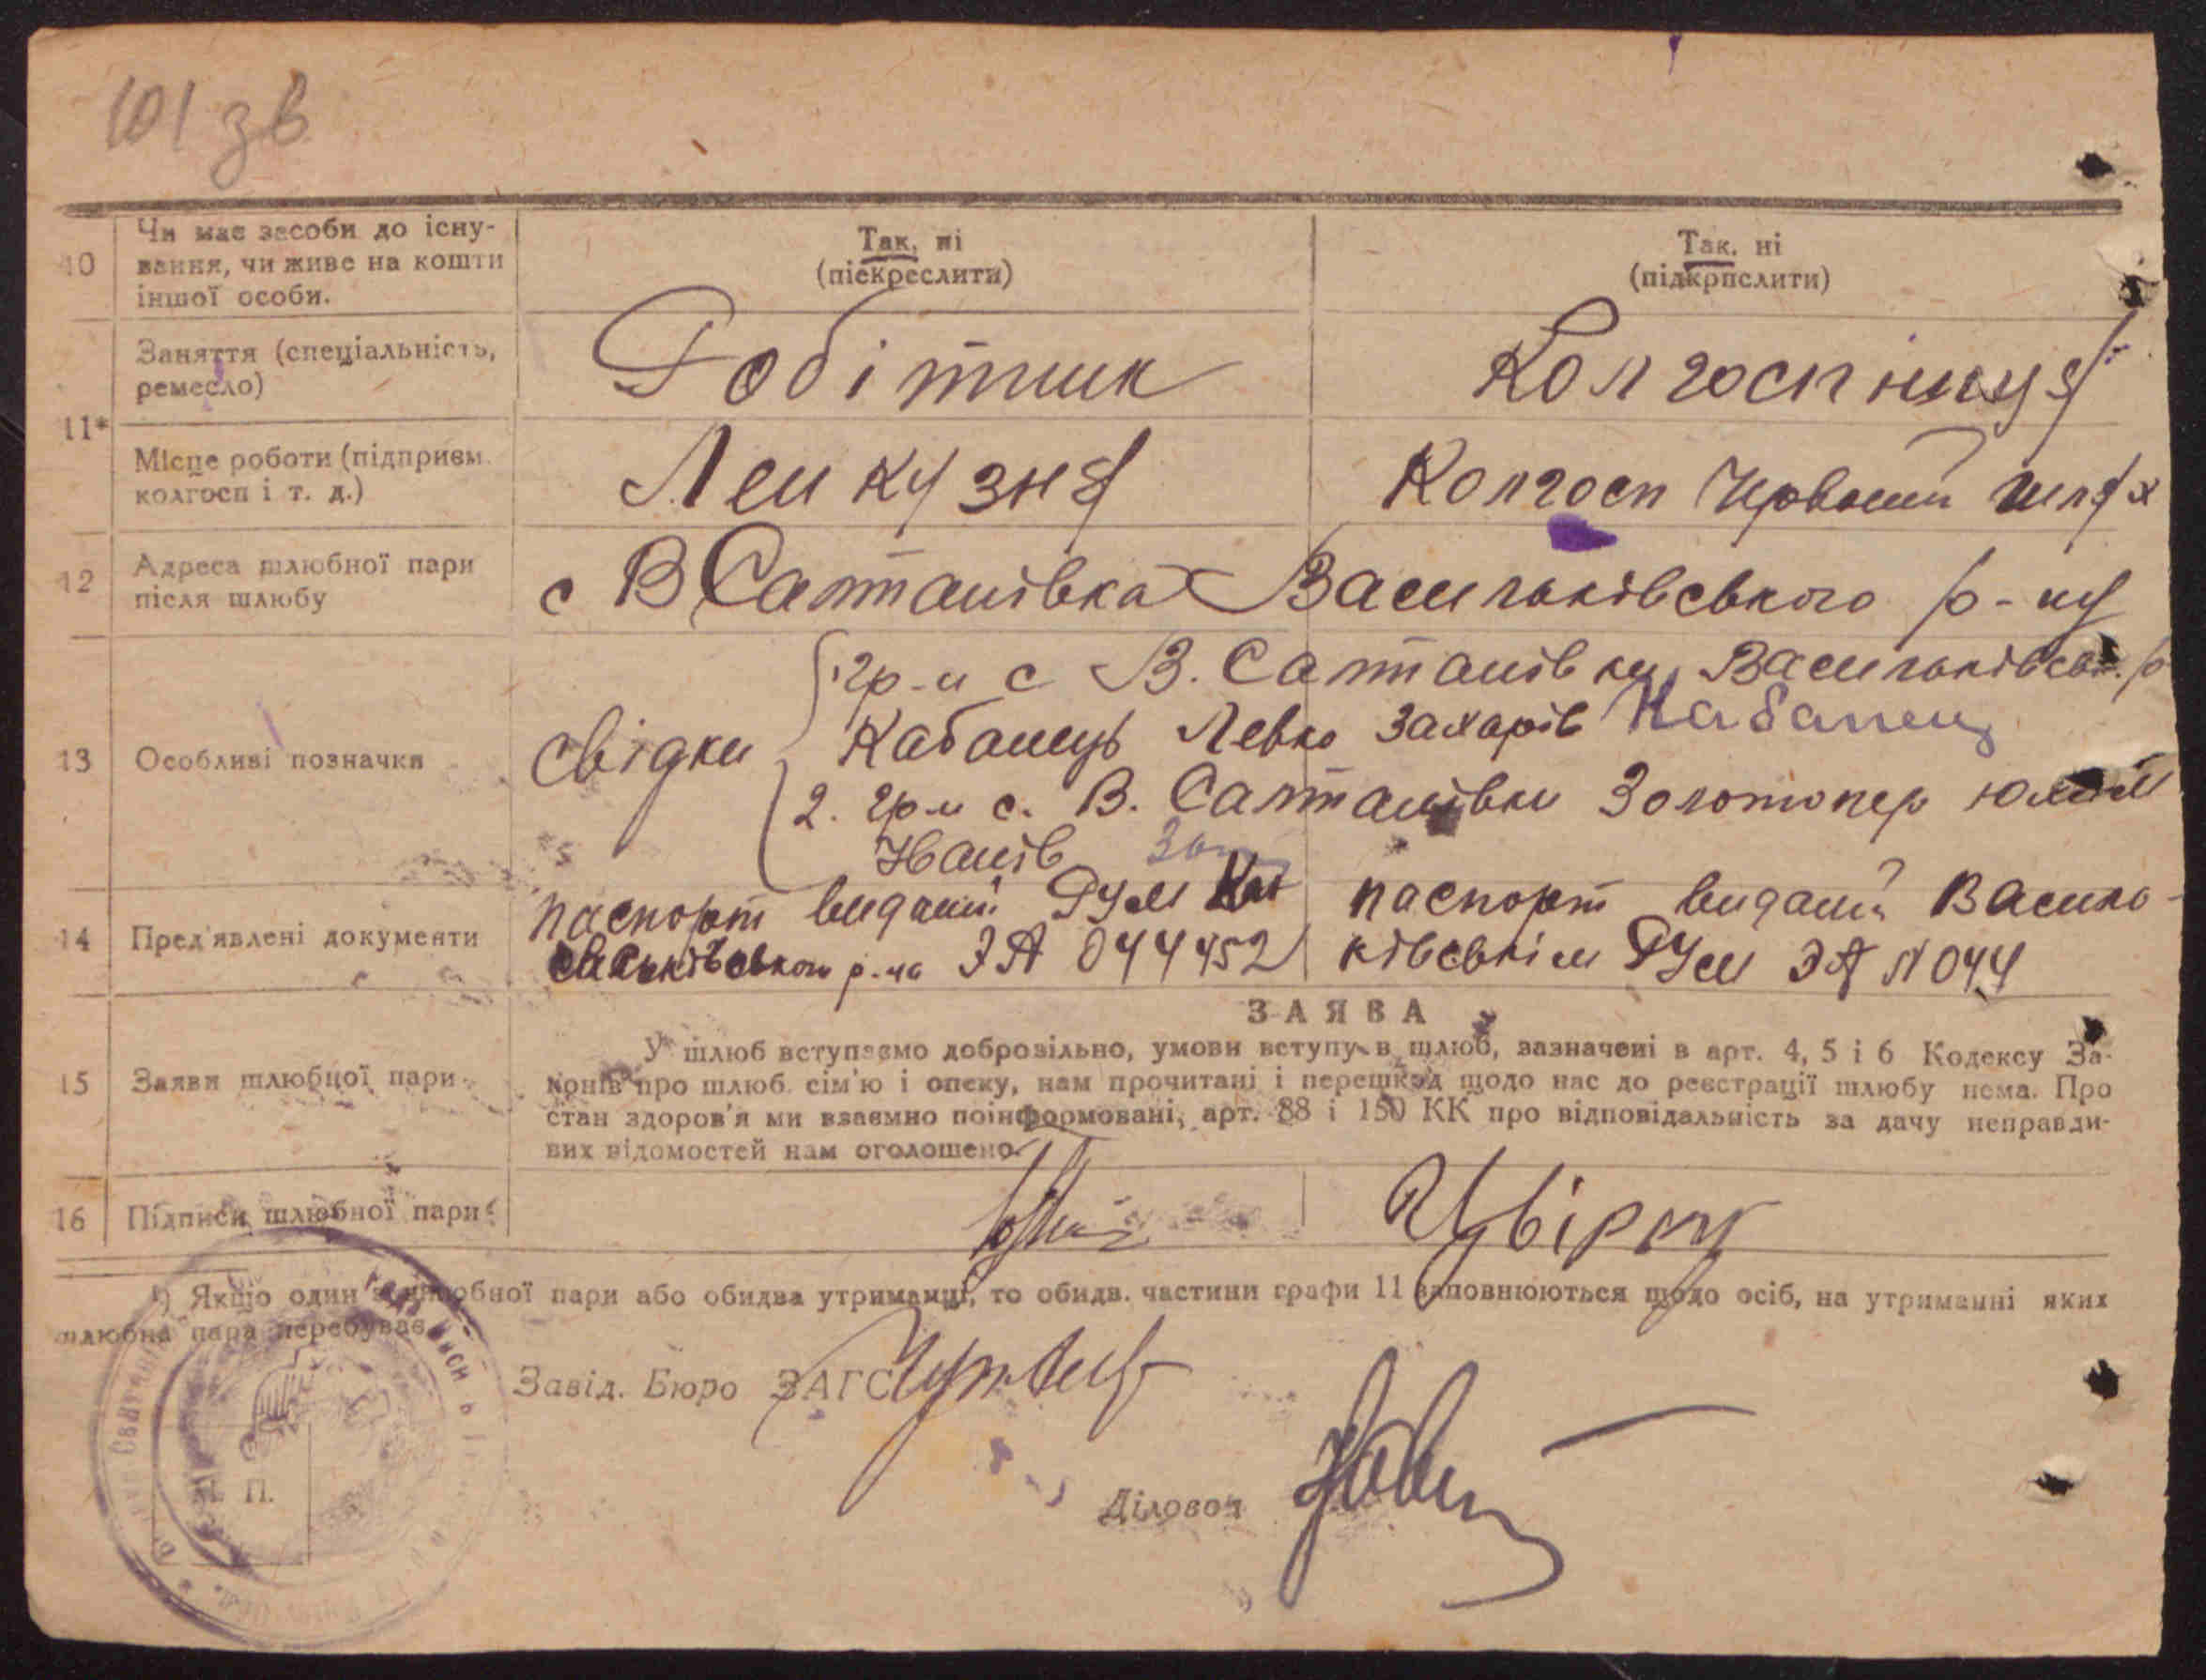 101 зв
10 Чи має засоби до існу- Так, ні Так. ні
вання, чи живе на кошти (піскреслити) (підкрпслити)
іншої особи.
11* Заняття (спеціальність, Робітник Колгоспниця
ремесло)
Місце роботи (підприєм. Лен кузня Колгосп Червоний шлях
колгосп і т. д.)
12 Адреса шлюбної пари с В Салтанівка Васильківського р-ну
після шлюбу
13 Особливі позначки свідки 1. гр-н с В. Салтанівки, Васильківськ. р
Кабанець Левко Захарів Кабанец
2. гр-н с. В. Салтанівки Золотопер
Іванів
14 Пред'явлені документи паспорт виданий РУМ паспорт виданий Василь-
р-на ЭА 044452 ківським РУМ ЭА N 044
ЗАЯВА
15 Заяви шлюбної пари У шлюб вступаємо добровільно, умови вступу в шлюб, зазначені в арт. 4, 5 і 6 Кодексу За-
конів про шлюб. сім'ю і опеку, нам прочитані і перешкод щодо нас до реєстрації шлюбу нема. Про
стан здоров'я ми взаємно поінформовані, арт. 88 і 150 КК про відповідальність за дачу неправди-
вих відомостей нам оголошено.
16 Підписи шлюбної пари
*) Якщо один з шлюбної пари або обидва утриманці, то обидв. частини графи 11 заповнюються щодо осіб, на утриманні яких
шлюбна пара перебуває.
Завід. Бюро ЗАГС
Діловод
П.